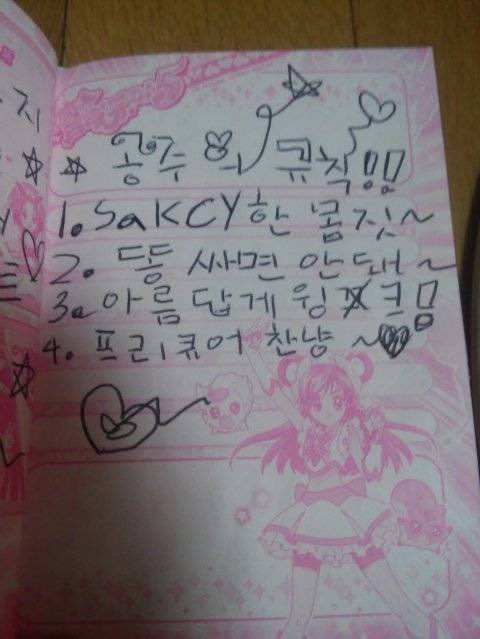 지
공주의 규칙!!
1. SaKCY한 몸짓~
2. 똥 싸면 안돼~
3. 아름답게 윙크 옴
4. 프리큐어 찬냥~